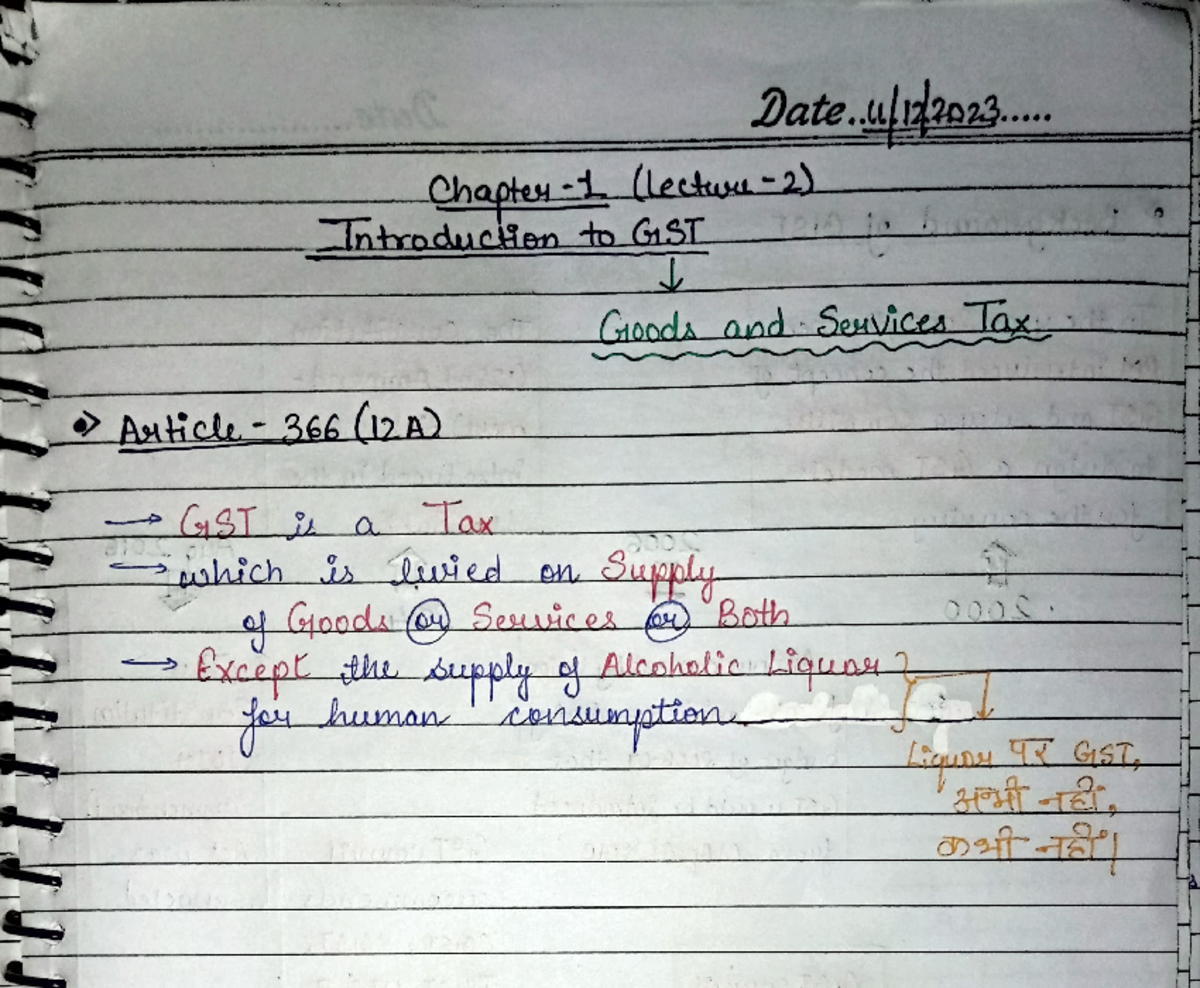 Date..11/12/2023.....
Chapter-1 (lecture-2)
Introduction to GST
↓
Goods and Services Tax
Article - 366 (12A)
→ GST is a Tax
→ which is livied on Supply
of Goods or Services or Both
→ Except the supply of Alcoholic Liquor
for human consumption
Liquor पर GST,
अभी नहीं,
कभी नहीं।